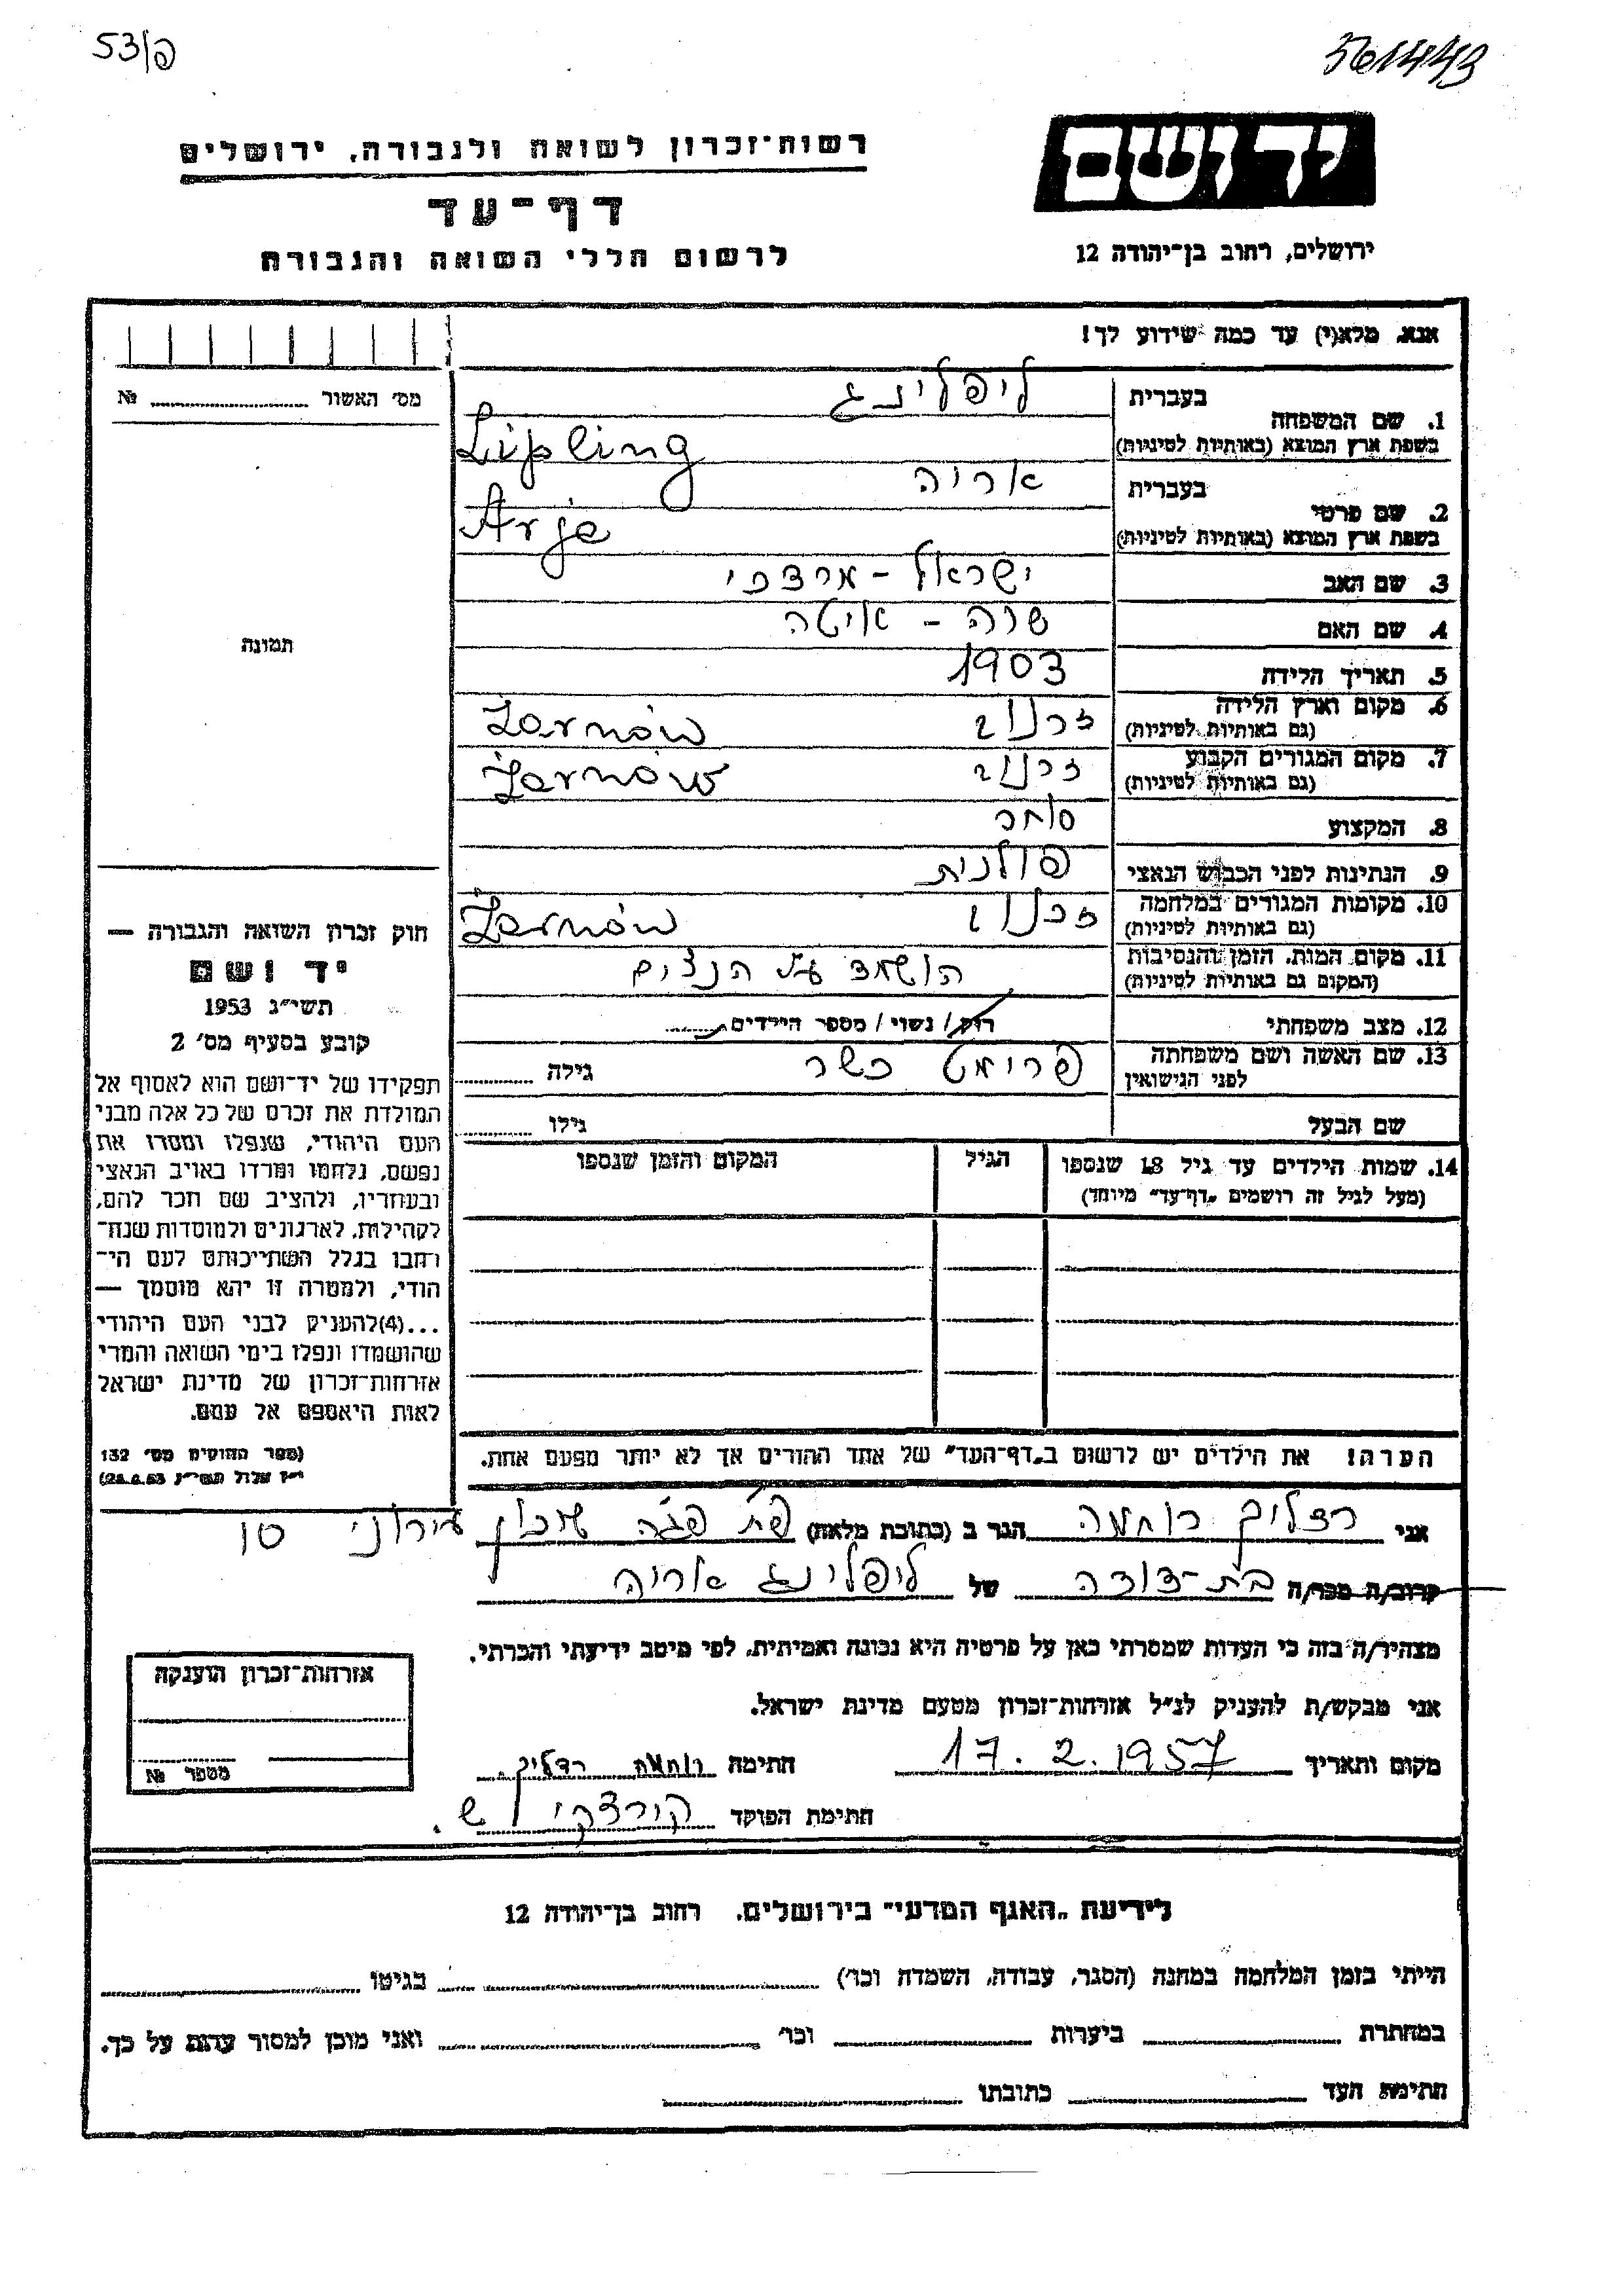 53/פ
561443
יד ושם
ירושלים, רחוב בן־יהודה 12
רשות־זכרון לשואה ולגבורה, ירושלים
דף־עד
לרשום חללי השואה והגבורה
אנא, מלא(י) עד כמה שידוע לך!
1. שם המשפחה
בעברית ליפלינג
בשפת ארץ המוצא (באותיות לטיניות) Lipling
2. שם פרטי
בעברית אריה
בשפת ארץ המוצא (באותיות לטיניות) Arje
3. שם האב ישראל - מרדכי
4. שם האם שרה - איטה
5. תאריך הלידה 1903
6. מקום וארץ הלידה
(גם באותיות לטיניות) זרנוב Żarnów
7. מקום המגורים הקבוע
(גם באותיות לטיניות) זרנוב Żarnów
8. המקצוע סוחר
9. הנתינות לפני הכבוש הנאצי פולנית
10. מקומות המגורים במלחמה
(גם באותיות לטיניות) זרנוב Żarnów
11. מקום המות, הזמן והנסיבות
(המקום גם באותיות לטיניות) הושמד ע"י הנצים
12. מצב משפחתי רוק/ נשוי/ מספר הילדים
13. שם האשה ושם משפחתה
לפני הנישואין פרומט כשר גילה
שם הבעל גילו
14. שמות הילדים עד גיל 18 שנספו הגיל המקום והזמן שנספו
(מעל לגיל זה רושמים „דף־עד" מיוחד)
הערה! את הילדים יש לרשום ב„דף־העד" של אחד ההורים אך לא יותר מפעם אחת.
מס' האשור №
תמונה
חוק זכרון השואה והגבורה —
יד ושם
תשי"ג 1953
קובע בסעיף מס' 2
תפקידו של יד־ושם הוא לאסוף אל
המולדת את זכרם של כל אלה מבני
העם היהודי, שנפלו ומסרו את
נפשם, נלחמו ומרדו באויב הנאצי
ובעוזריו, ולהציב שם וזכר להם,
לקהילות, לארגונים ולמוסדות שנח־
רבו בגלל השתייכותם לעם הי־
הודי, ולמטרה זו יהא מוסמך —
...(4) להעניק לבני העם היהודי
שהושמדו ונפלו בימי השואה והמרי
אזרחות־זכרון של מדינת ישראל
לאות היאספם אל עמם.
(ספר החוקים מס' 132
י"ז אלול תשי"ג 28.8.53)
אני רדליך רוחמה הגר ב (כתובת מלאה) פ"ת פגה שכון עירוני טו
קרוב/ה מכר/ה בת-דודה של ליפלינג אריה
מצהיר/ה בזה כי העדות שמסרתי כאן על פרטיה היא נכונה ואמיתית, לפי מיטב ידיעתי והכרתי.
אני מבקש/ת להעניק לנ"ל אזרחות־זכרון מטעם מדינת ישראל.
מקום ותאריך 17.2.1957 חתימה רוחמה רדליך
חתימת הפוקד קורצקי ש.
אזרחות־זכרון הוענקה
מספר №
לידיעת „האגף המדעי" בירושלים, רחוב בן־יהודה 12
הייתי בזמן המלחמה במחנה (הסגר, עבודה, השמדה וכו') בגיטו
במחתרת ביערות וכו' ואני מוכן למסור עדות על כך.
חתימת העד כתובתו